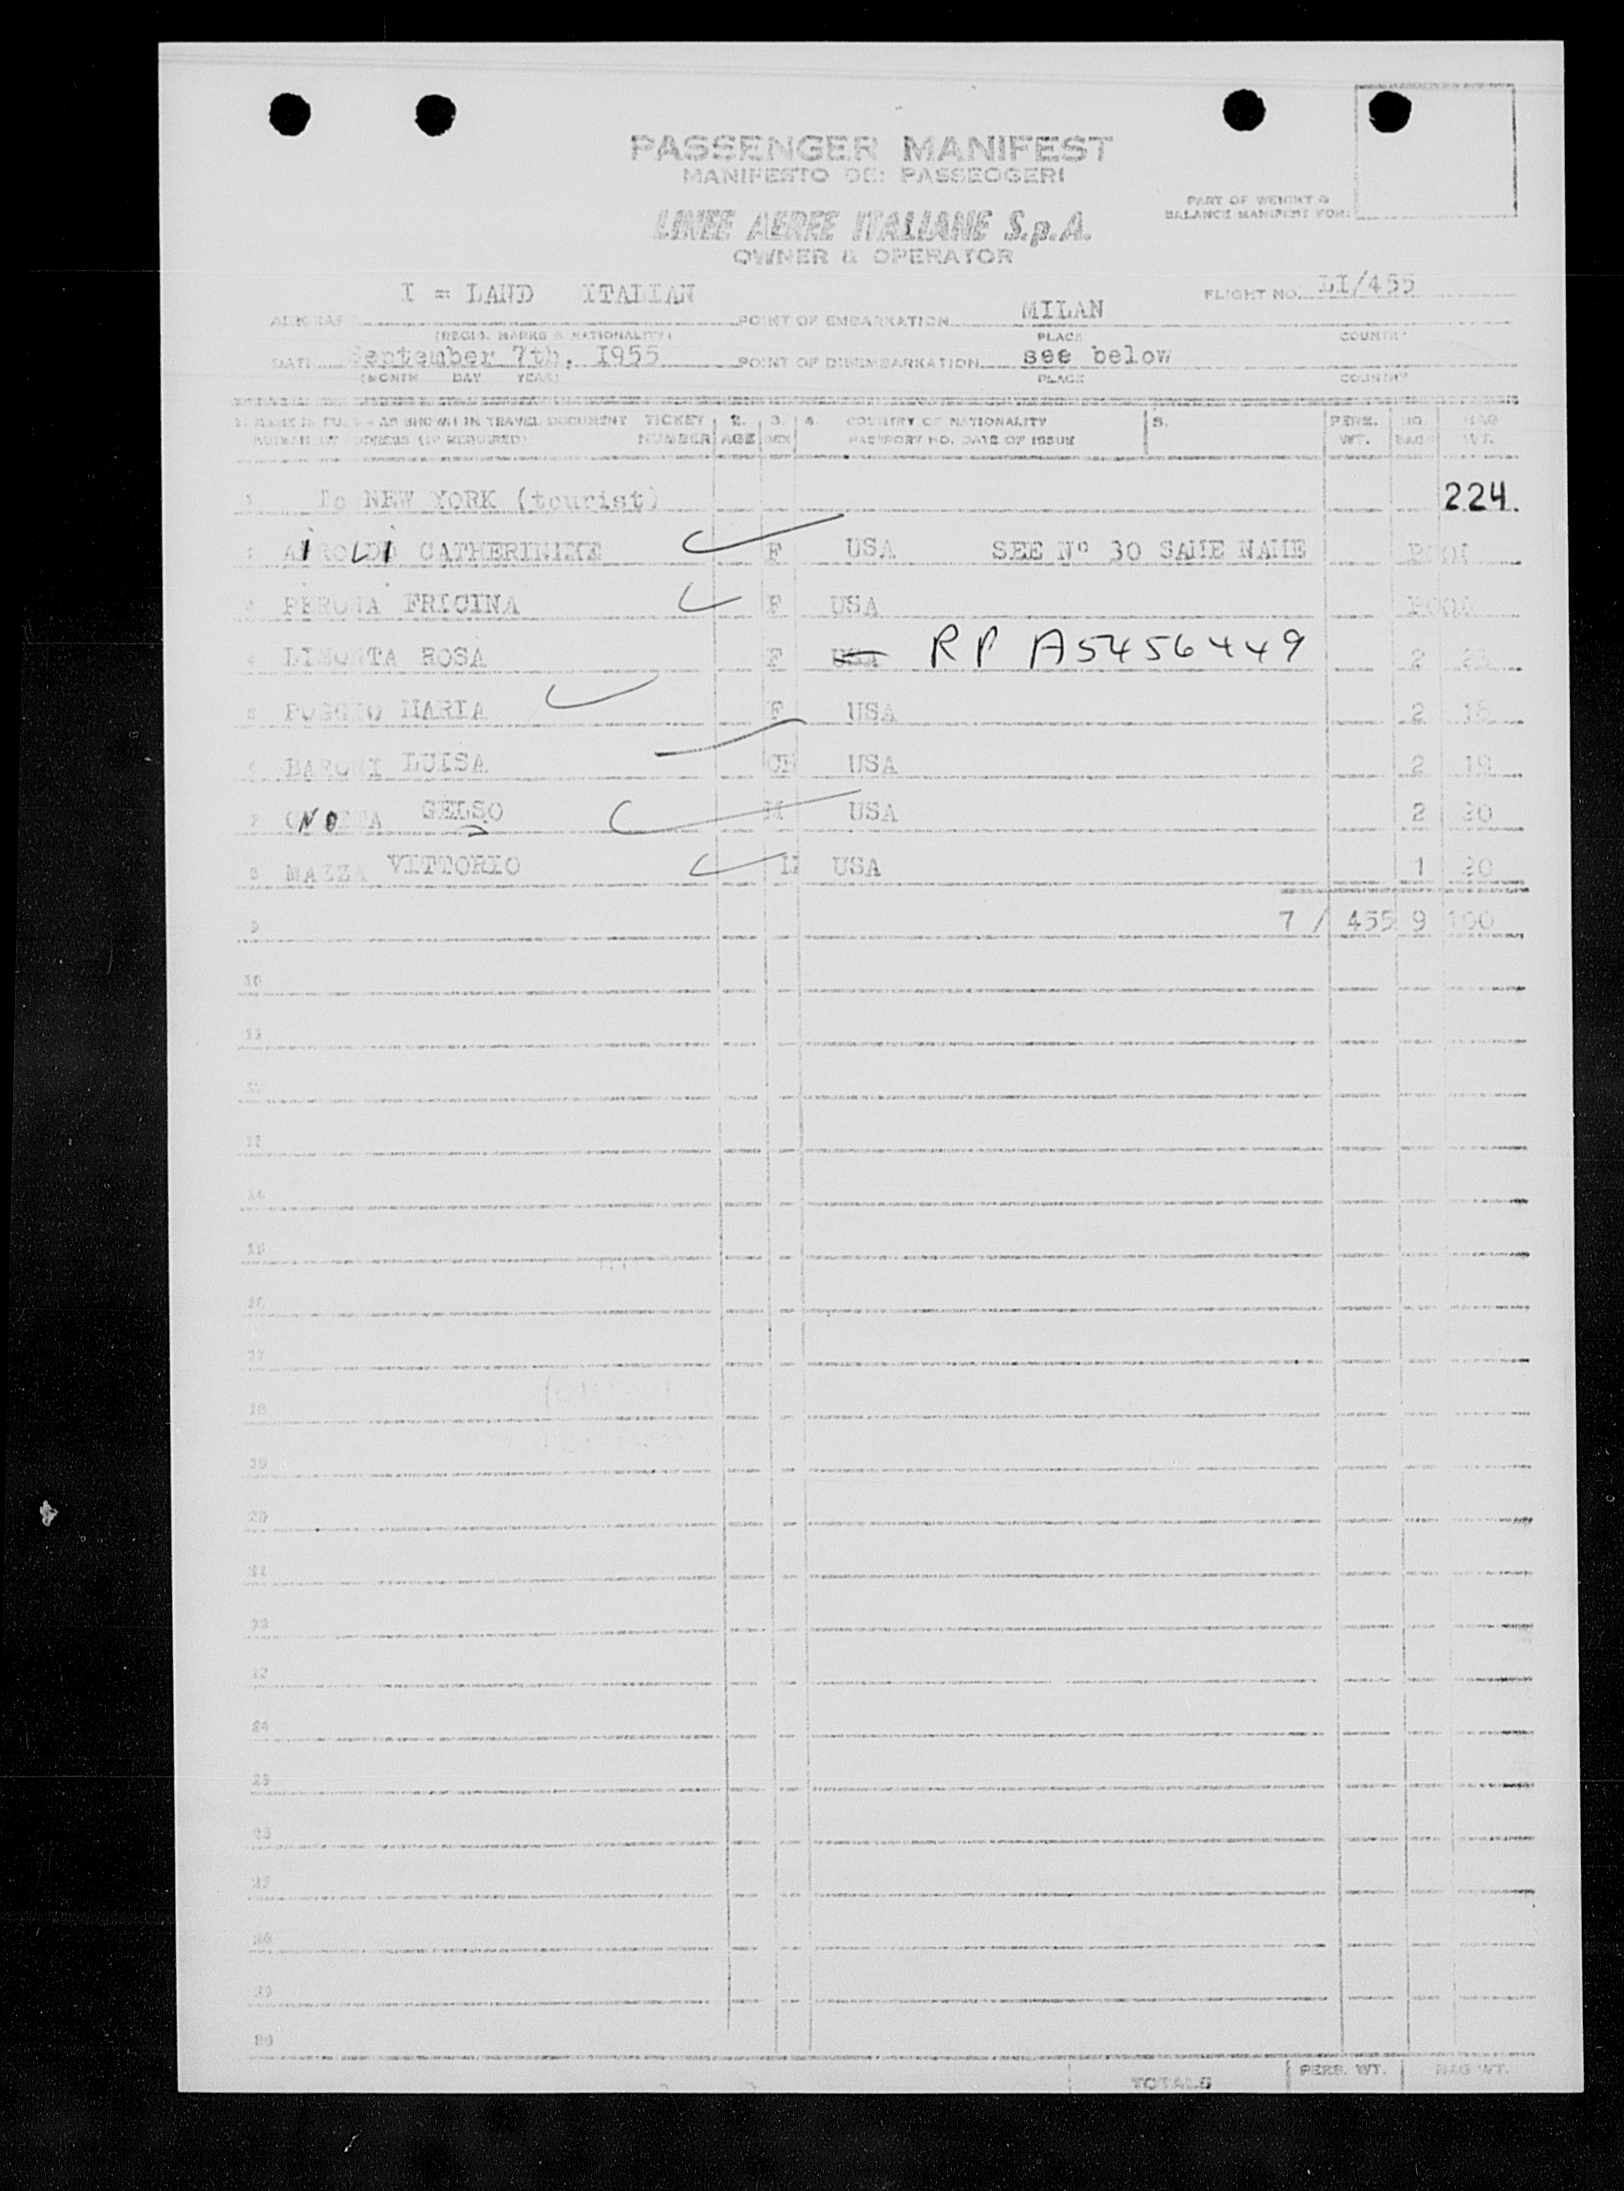 PASSENGER MANIFEST
MANIFESTO DEI PASSEGGERI
PART OF WEIGHT &
BALANCE MANIFEST FORM
LINEE AEREE ITALIANE S.p.A.
OWNER & OPERATOR
I = LAND ITALIAN
FLIGHT NO. LI/455
AIRCRAFT POINT OF EMBARKATION MILAN
(REGIS. MARKS & NATIONALITY) PLACE COUNTRY
DATE September 7th, 1955 POINT OF DISEMBARKATION see below
(MONTH DAY YEAR) PLACE COUNTRY
AS SHOWN IN TRAVEL DOCUMENT TICKET 2. 3. 4. COUNTRY OF NATIONALITY 5. PERS. NO. BAG
(IF REQUIRED) NUMBER AGE SEX PASSPORT NO. DATE OF ISSUE WT. BAGS WT.
1 To NEW YORK (tourist) 224.
2 AIROLDI CATHERINE F USA SEE Nº 30 SAME NAME POOL
3 PERONA FRICINA F USA POOL
4 LIMONTA ROSA F USA RP A5456449 2
5 POGGIO MARIA F USA 2 18
6 BARONI LUISA CH USA 2 19
7 GELSO M USA 2 20
8 MAZZA VITTORIO M USA 1 20
9 7 / 455 9 100
10
11
12
13
14
15
16
17
18
19
20
21
22
23
24
25
26
27
28
29
30
TOTALS PERS. WT. BAG WT.